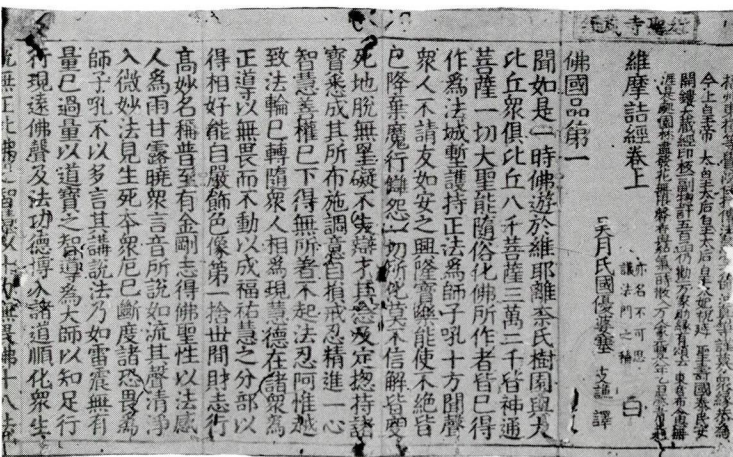 今上皇帝 太皇太后皇太后皇太妃祝延 聖壽國泰民安
開鏤大藏經印板一副計五百
維摩詰經卷上
亦名不可思
議法門之稱
白
天月氏國優婆塞 支謙 譯
佛國品第一
聞如是一時佛遊於維耶離奈氏樹園與大
比丘衆俱比丘八千菩薩三萬二千皆神通
菩薩一切大聖能隨俗化佛所作者皆已得
作為法城塹護持正法為師子吼十方聞聲
衆人不請友如安之興隆寶能使不絕皆
已降棄魔行讎怨一切所化莫不信解皆
死地脫無罣礙不失辯才其念及定揔持諸
寶悉成其所布施調意自損戒忍精進一心
智慧善權已下得無所著不起法忍阿惟越
致法輪已轉隨衆人相為現慧德在諸衆為
正導以無畏而不動以成福祐慧之分部以
得相好能自嚴飾色像第一捨世間財志行
高妙名稱普至有金剛志得佛聖性以法感
人為雨甘露曉衆言音所說如流其聲清淨
入微妙法見生死本衆厄已斷度諸恐畏為
師子吼不以多言其講說法乃如雷震無有
量已過量以道寶之智導為大師以知足行
行現遠佛聲及法功德博入諸道順化衆生
佛之智慧以十力無畏佛十八法